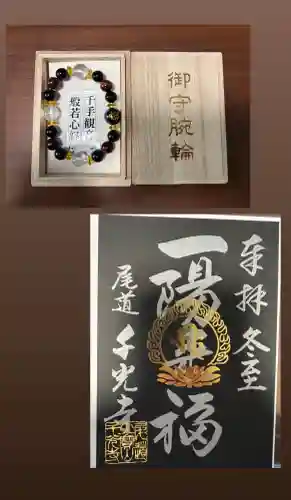 御守腕輪
千手観音
般若心経
奉拝 冬至
一陽来福
尾道 千光寺